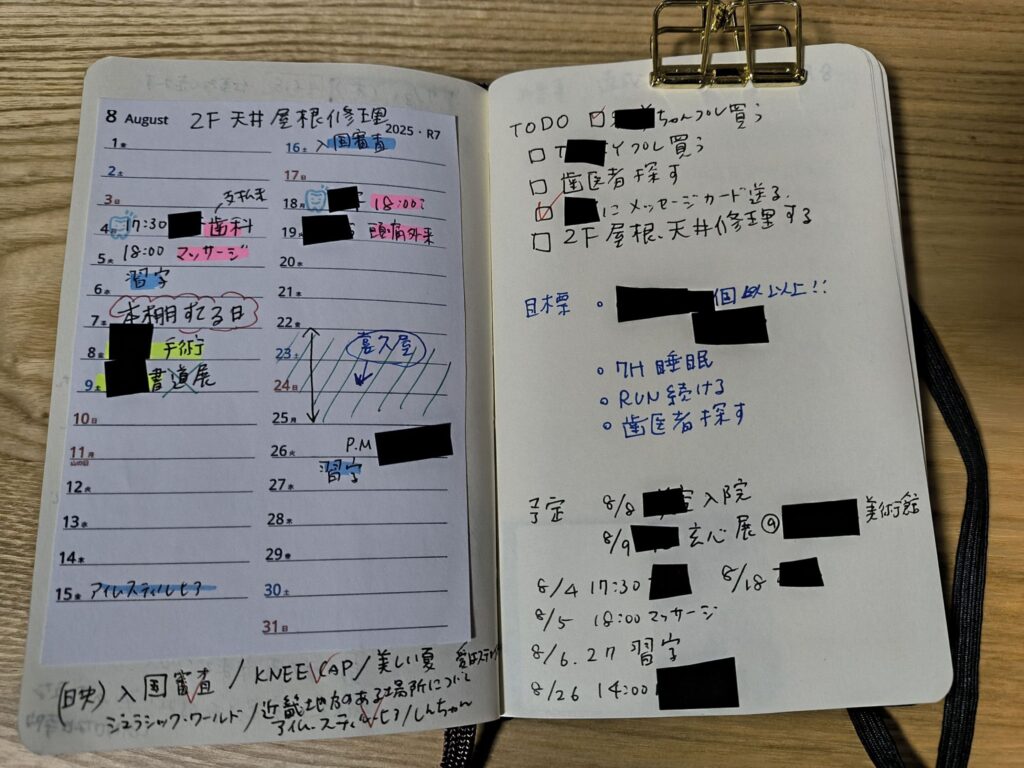 8 August 2F 天井屋根修理
2025・R7
1金
2土
3日
支払未
4月 17:30 歯科
5火 18:00 マッサージ
6水 習字
7木 本棚すてる日
8金 手術
9土 書道展
10日
11月
山の日
12火
13水
14木
15金 アイムスティルヒア
16土 入国審査
17日
18月 18:00〜
19火 頭痛外来
20水
21木
22金
23土 喜久屋
24日
25月
P.M
26火
習字
27水
28木
29金
30土
31日
(映) 入国審査 / KNEECAP / 美しい夏
ジュラシック・ワールド / 近畿地方のある場所について
アイム・スティルヒア / しんちゃん
TODO ちゃんプレ買う
プレ買う
歯医者探す
にメッセージカード送る
2F 屋根、天井修理する
目標 個以上!!
7H 睡眠
RUN 続ける
歯医者探す
予定 8/8 入院
8/9 玄心展 @ 美術館
8/4 17:30 8/18
8/5 18:00 マッサージ
8/6.27 習字
8/26 14:00